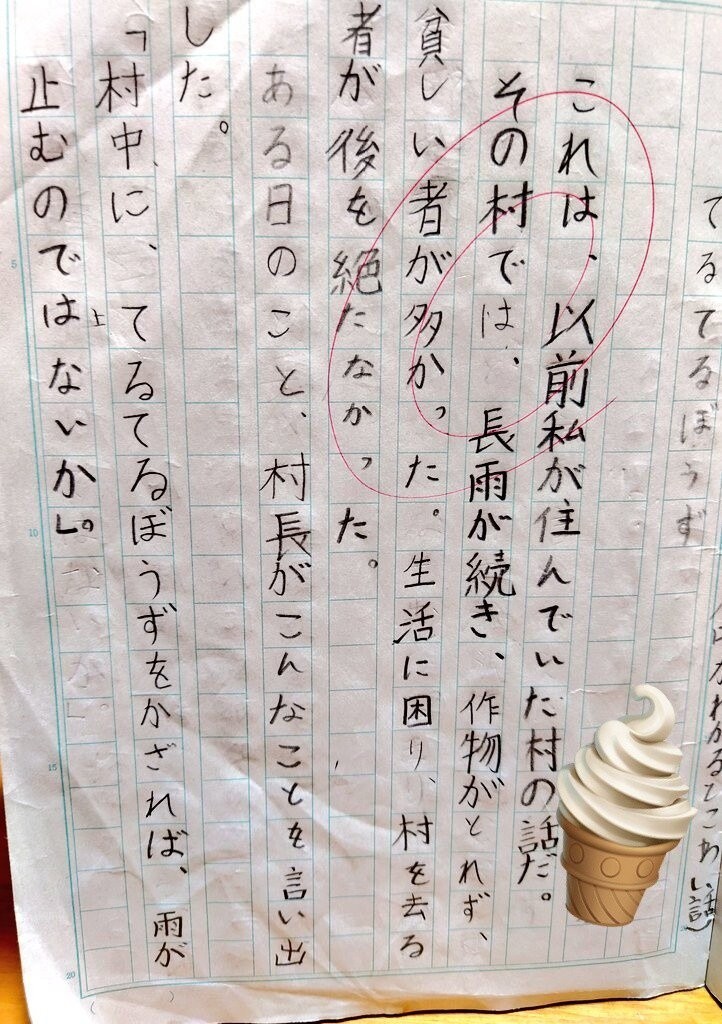 てるてるぼうず
これは、以前私が住んでいた村の話だ。
その村では、長雨が続き、作物がとれず、
貧しい者が多かった。生活に困り、村を去る
者が後を絶たなかった。
ある日のこと、村長がこんなことを言い出
した。
「村中に、てるてるぼうずをかざれば、雨が
止むのではないか」。
5
10
15
20